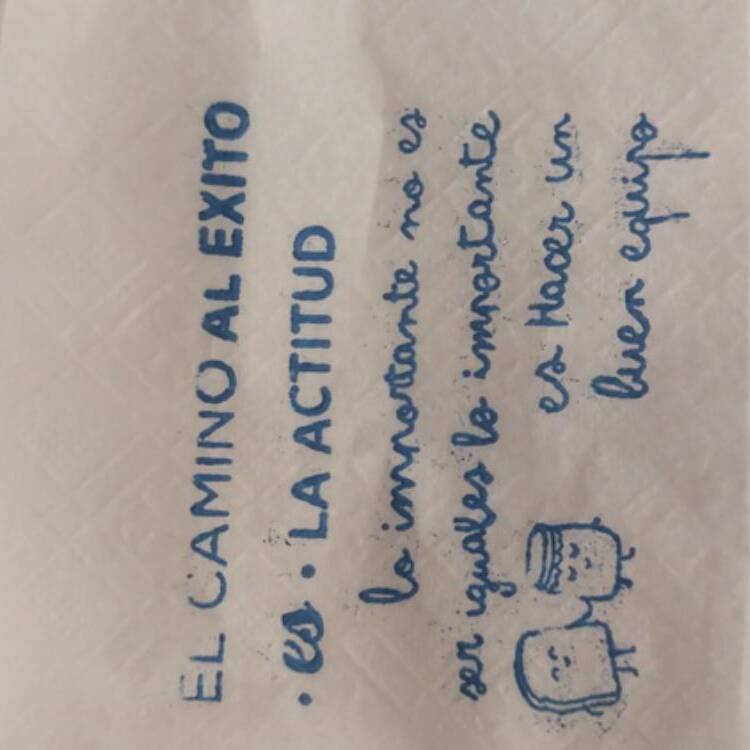 EL CAMINO AL EXITO
• es • LA ACTITUD
lo importante no es
ser iguales lo importante
es Hacer un
buen equipo